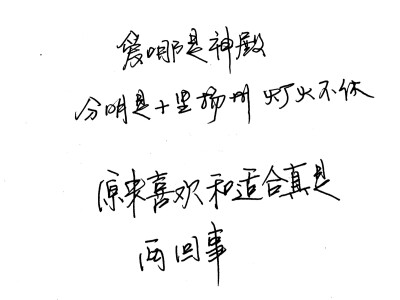 爱哪是神殿
分明是十里扬州 灯火不休
原来喜欢和适合真是
两回事